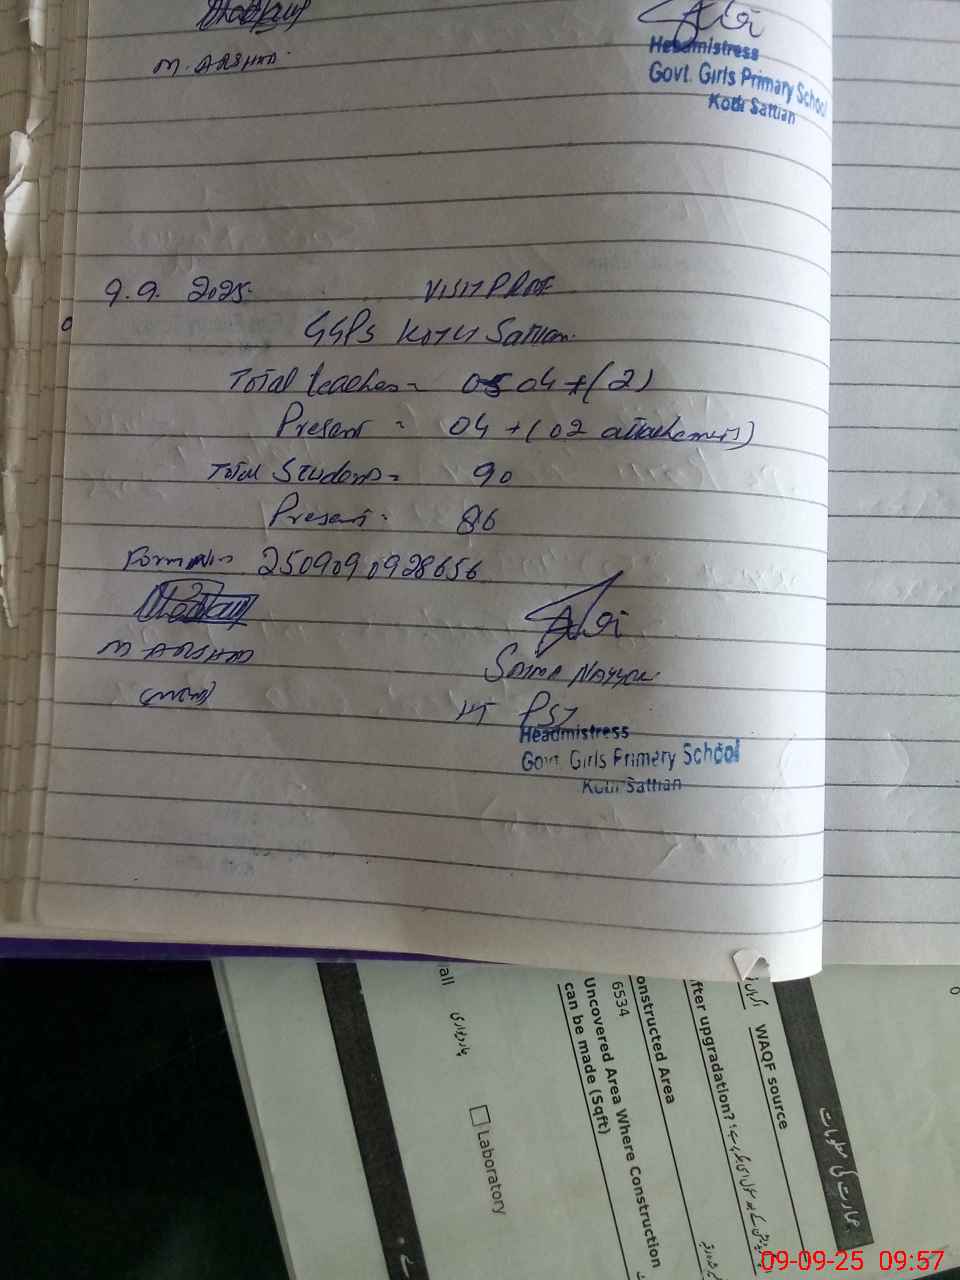 M. ARSHAD
Headmistress
Govt. Girls Primary School
Kotli Sattian
9.9. 2025.
VISIT PROF
GGPS KOTLI Sattian.
Total teaches = 04 + (2)
Present = 04 + (02 attachements)
Total Students = 90
Present = 86
Form No 2509090928656
M ARSHAD
Saima Nayyar
HT PST
Headmistress
Govt. Girls Primary School
Kotli Sattian
all
چاردیواری
Laboratory
Uncovered Area Where Construction
can be made (Sqft)
6534
onstructed Area
fter upgradation?
WAQF source
عمارت کی معلومات
09-09-25 09:57